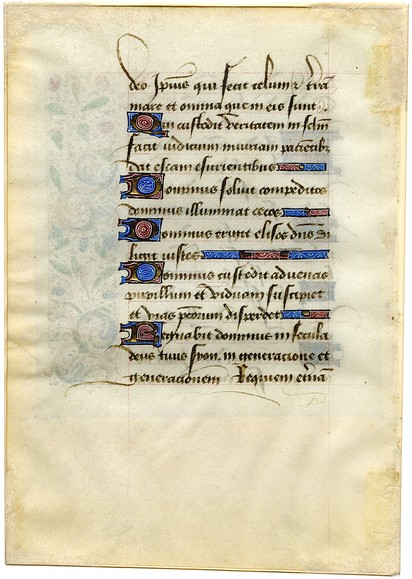 deo Ipius qui fecit celum z trā
mare et omnia que in eis sunt
Qui custodit veritatem in sclm
facit iudicium iniuriam patientibz
dat escam esurientibus
Dominus soluit compeditos
dominus illuminat cecos
Dominus erigit elisos dns di
ligit iustos
Dominus custodit aduenas
pupillum et viduam suscipiet
et vias pcorum disperdet
Regnabit dominus in secula
deus tuus syon. in generacione et
generacionem Requiem etnā